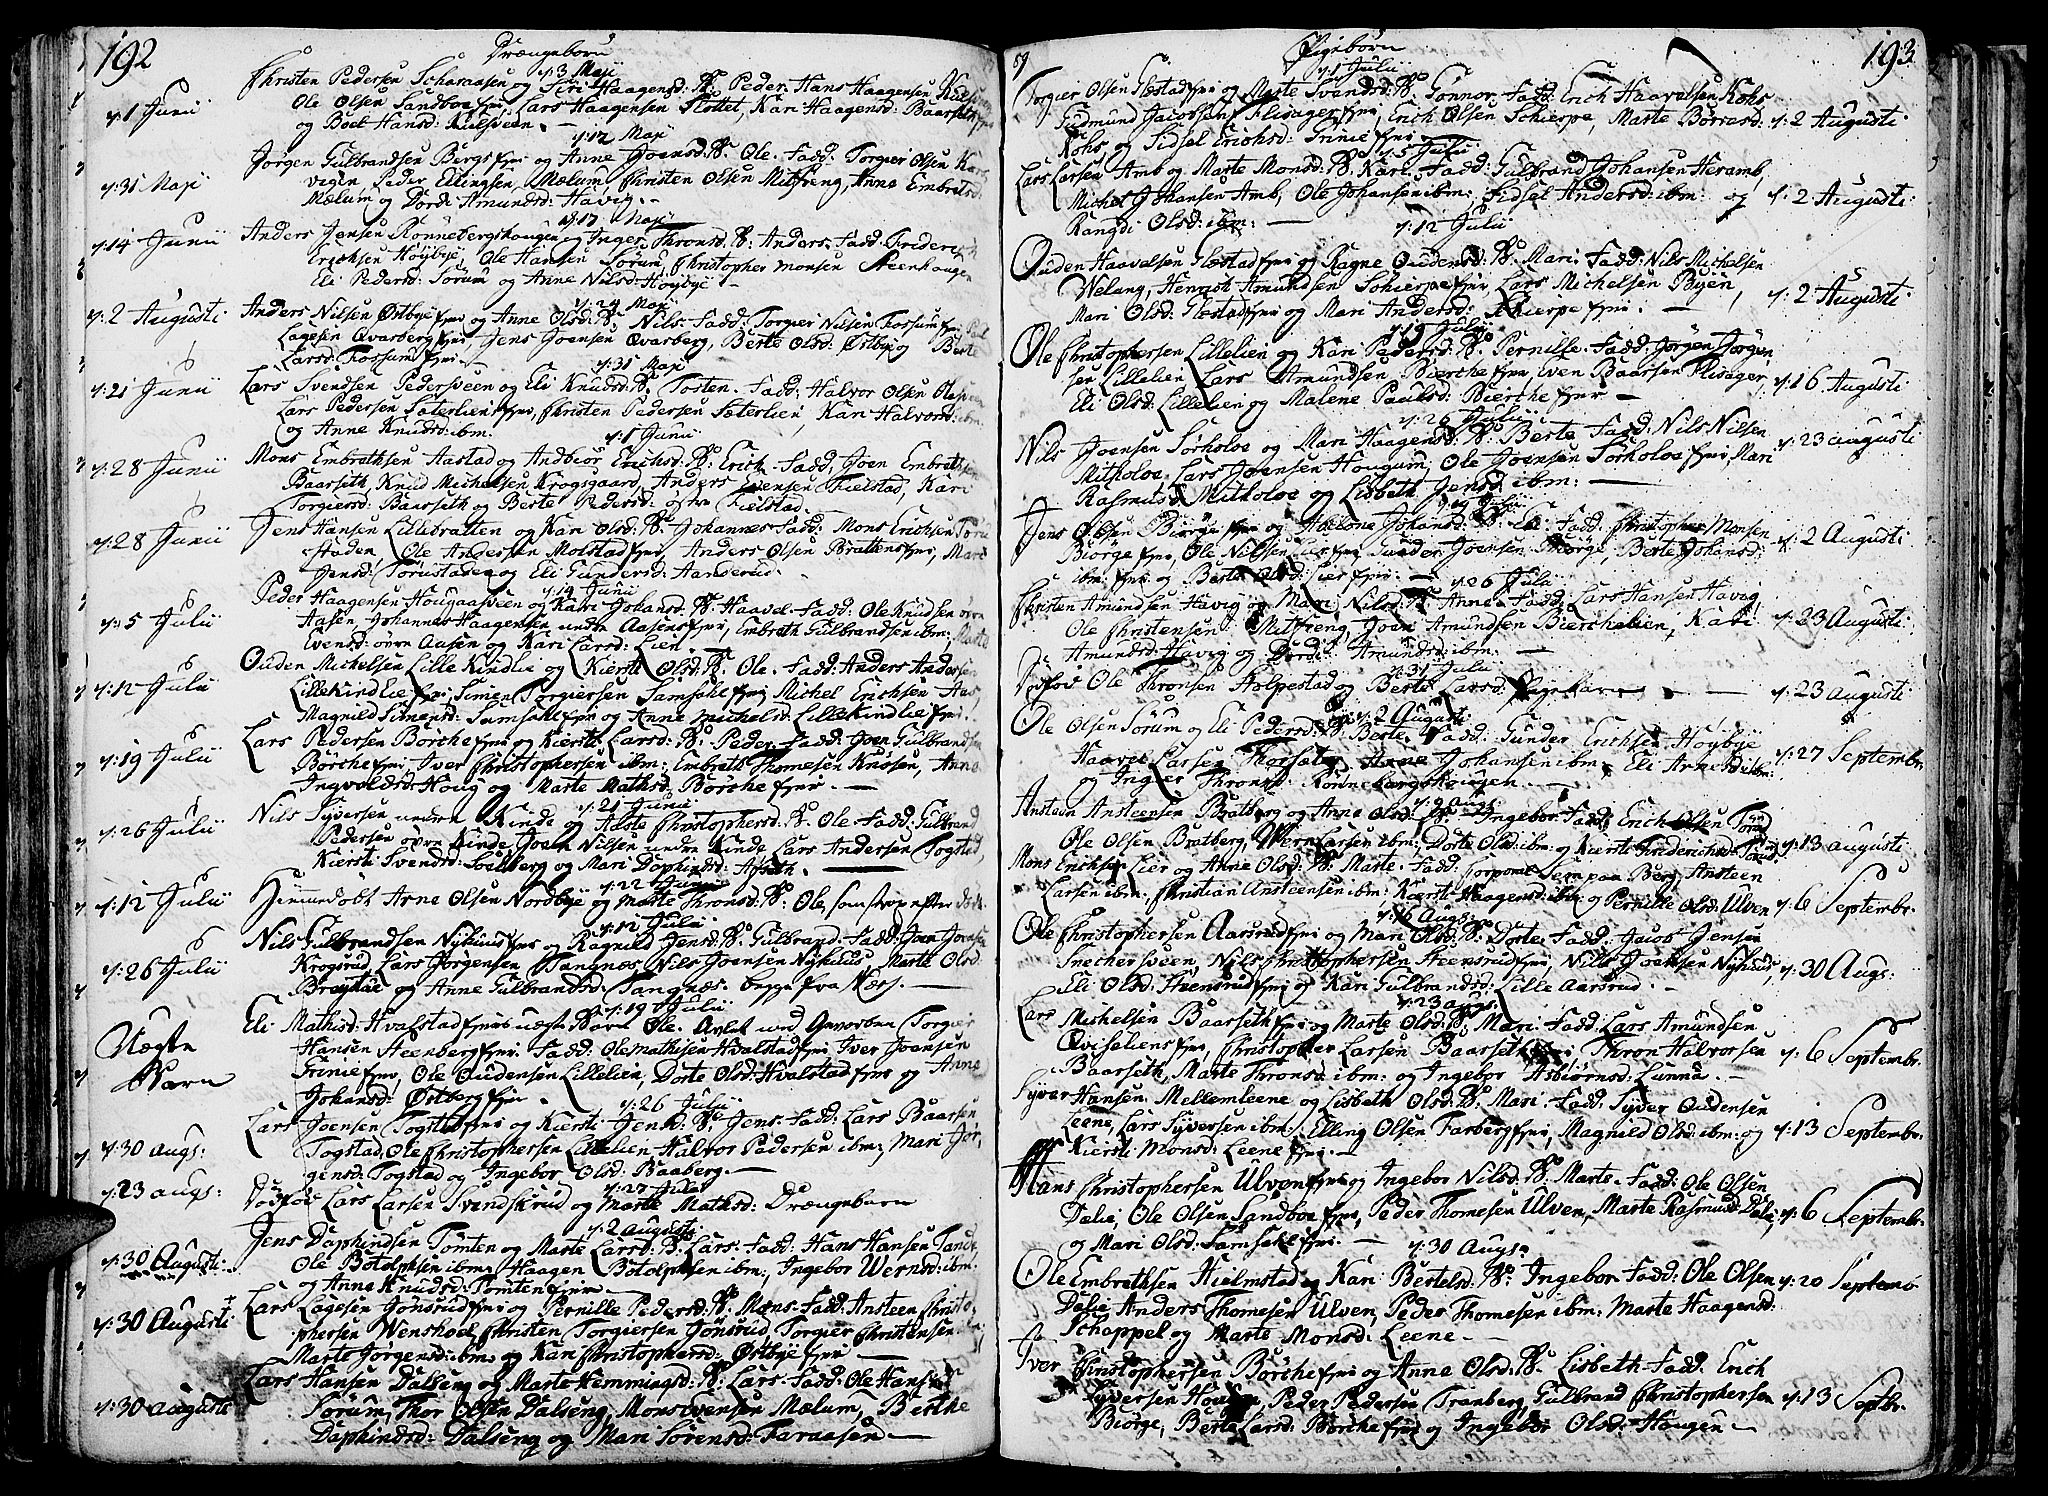 192
Drængebørn
d: 3 Maji
d: 1 Junii
Christen Pedersen Scharaasen og Siri Haagensd: B: Peder Hans Haagensen
Ole Olsen Sandboe fjer Lars Haagensen Slottet, Kari Haagensd: Baarseth
og Boel Hansd: Kulsveen.
d: 12 Maji
Jørgen Gulbrandsen Bergs fjer og Anne Joensd: B: Ole. Fadd: Torgier Olsen
d: 31 Maji
vigen, Peder Ellingsen, Mælum Christen Olsen Mitfreng, Anne Embretsd:
Mælum og Dordi Amundsd: Havig.
d: 17 Maji
d: 14 Junii
Anders Jensen Rønnebergshougen og Inger Thronsd: B: Anders. Fadd: Frideric
Erichsen Høybye, Ole Hansen Sørum, Christopher Monsen Steenhougen
Eli Pedersd: Sørum og Anne Nilsd: Høybye
d: 24 Maji
d: 2 Augusti
Anders Nilsen Østbye fjer og Anne Olsd: B: Nils. Fadd: Torgier Nilsen Fossum fjer
Lagesen Qvarberg fjer, Jens Joensen Qvarberg, Berte Olsd: Østby og Berte
Larsd: Fossum fjer.
d: 31 Maji
d: 21 Junii
Lars Svendsen Pedersveen og Eli Knudsd: B: Torsten. Fadd: Halvor Olsen
Lars Pedersen Sæterlien fjer, Christen Pedersen Sæterlien, Kari Halvorsd: ibm.
og Anne Knudsd: ibm.
d: 1 Junii
d: 28 Junii
Mons Embrethsen Aastad og Andbiør Erichsd: B: Erich. Fadd: Joen Embreths.
Baarseth, Knud Michelsen Krogsgaard, Anders Evensen Fielstad, Kari
Torgiersd: Baarseth og Berte Pedersd: østre Fielstad.
d: 28 Junii
Jens Hansen Lillebratten og Kari Olsd: B: Johannes. Fadd: Mons Erichsen
Haden, Ole Andersen Molstad fjer, Anders Olsen Brattens fjer, Mari
Jensd: Torustad og Eli Gundersd: Aanderud.
d: 14 Junii
d: 5 Julii
Peder Haagensen Hougaasveen og Kari Johansd: B: Haavel. Fadd: Ole Knudsen
Aasen, Johannes Haagensen nedre Aasens fjer, Embreth Gulbrandsen ibm:, Marte
Evensd: øvre Aasen og Kari Larsd: Lien.
d: 12 Julii
Ouden Michelsen Lille Kindlie og Kiersti Olsd: B: Ole. Fadd: Anders Andersen
Lille Kindlie fjer, Simen Torgiersen Samsahl fjer, Michel Erichsen
Magnild Simensd: Samsahl fjer og Anne Michelsd: Lille Kindlie fjer.
d: 19 Julii
Lars Pedersen Børche fjer og Kiersti Larsd: B: Peder. Fadd: Joen Gulbrandsen
Børche fjer, Iver Christophersen ibm:, Embreth Thomesen Knosen, Anne
Ingvoldsd: Houg og Marte Mathisd: Børche fjer.
d: 21 Junii
d: 26 Julii
Nils Syversen nedre Kinde og Aaste Christophersd: B: Ole. Fadd: Gulbrand
Pedersen øvre Kinde, Joen Nilsen nedre Kinde, Lars Andersen Togstad,
Kiersti Svendsd: Soelberg og Mari Daphindsd: Afseth.
d: 22 Junii
d: 12 Julii
Hiemmedøbt Arne Olsen Nordbye og Marte Thronsd: B: Ole, som strax efter døde.
d: 12 Julii
d: 26 Julii
Nils Gulbrandsen Nykuus fjer og Ragnild Jensd: B: Gulbrand. Fadd: Joen Joensen
Krogsrud, Lars Jørgensen Tangnæs, Nils Joensen Nykuus, Marte Olsd:
og Anne Gulbrandsd: Tangnæs. begge fra Næs.
d: 19 Julii
Uægte
Barn
Eli Mathisd: Hvalstad fjers uægte Barn Ole. Avlet med Gevorben Torgier
Hansen Steenberg fjer. Fadd: Ole Mathisen Hvalstad fjer Iver Joensen
Trinie fjer, Ole Oudensen Lillelien, Dorte Olsd: Hvalstad fjer og Anne
Johansd: Østberg fjer.
d: 26 Julii
d: 30 augs:
Lars Joensen Togstad fjer og Kiersti Jensd: B: Jens. Fadd: Lars Baarsen
Togstad, Ole Christophersen Lillelien, Halvor Pedersen ibm:, Mari Jør,
gensd: Togstad og Ingebor Olsd: Baaberg.
d: 27 Julii
d: 23 augs:
Dødfød Lars Larsen Svendskrud og Marte Mathisd: Drængebarn
d: 2 Augusti
d: 30 Augusti
Jens Daphindsen Tomten og Marte Larsd: B: Lars. Fadd: Hans Hansen Tande,
Ole Botolphsen ibm:, Haagen Botolphsen ibm:, Ingebor Wernsd: ibm:
og Anne Knudsd: Tomten fjer.
d: 30 Augusti
Lars Lagesen Gønsrud fjer og Pernille Pedersd: B: Mons. Fadd: Ansteen Christo,
phersen Wenshoel, Christen Torgiersen Gønsrud, Torgier Christensen
Marte Jørgensd: ibm: og Kari Christophersd: Østbye fjer
d: 30 Augusti
Lars Hansen Dalseng og Marte Hemmingsd: B: Lars. Fadd: Ole Hansen
Sørum, Thor Olsen Dalseng, Mons Evensen Mælum, Berthe
Daphindsd: Dalseng og Mari Sørensd: Faraasen
193
Pigebørn
d: 1 Julii
Torgier Olsen Flæstad fjer og Marte Svendsd: B: Gonnor. Fadd: Erich Haavelsen Kohs
Gudmund Jacobsen Flisager fjer, Erich Olsen Schierpe, Marte Børresd:
Kohs og Sidsel Erichsd: Trinie fjer.
d: 2 Augusti
d: 5 Julii
Lars Larsen Amb og Marte Monsd: B: Kari. Fadd: Gulbrand Johansen Heramb,
Michel Johansen Amb, Ole Johansen ibm:, Sidsel Andersd: ibm: og
Rangdi Olsd: ibm:
d: 2 Augusti
d: 12 Julii
Ouden Haavelsen Flæstad fjer og Ragne Oudensd: B: Mari. Fadd: Nils Michelsen
Welang, Henrich Amundsen Schierpe fjer, Lars Michelsen Byen,
Mari Olsd: Flæstad fjer og Mari Andersd: Schierpe fjer.
d: 2 Augusti
d: 19 Julii
Ole Christophersen Lillelien og Kari Pedersd: B: Pernille. Fadd: Jørgen Jørgen,
sen Lillelien, Lars Amundsen Bierche fjer, Even Baarsen Flisager,
Eli Olsd: Lillelien og Malene Paulsd: Bierche fjer
d: 16 Augusti
d: 26 Julii
Nils Joensen Sørholoe og Mari Haagensd: B: Berte. Fadd: Nils Nilsen
Mitholoe, Lars Joensen Hougum, Ole Joensen Sørholoe fjer, Mari
Rasmusd: Mitholoe og Lisbeth Jensd: ibm:
d: 23 augusti
d: 19 Julii
Jens Olsen Biørge fjer og Abelone Johansd: B: Eli. Fadd: Christopher Monsen
Biørge fjer, Ole Nilsen Lier fjer, Gunder Joensen Biørge, Berte Johansd:
ibm: fjer og Berte Olsd: Lier fjer.
d: 2 Augusti
d: 26 Julii
Christen Amundsen Havig og Mari Nilsd: B: Anne. Fadd: Lars Hansen Havig,
Ole Christensen Mitfreng, Joen Amundsen Bierchelien, Kari
Amundsd: Havig og Dordi Amundsd: ibm:
d: 23 Augusti
d: 31 Julii
Dødfød Ole Thronsen Holpestad og Berte Larsd: Pigebarn
d: 23 augusti
d: 2 Augusti
Ole Olsen Sørum og Eli Pedersd: B: Berte. Fadd: Gunder Erichsen Høybye
Haavel Larsen Thorsæter, Arne Johansen ibm:, Eli Arnesd: ibm:
og Inger Thronsd: Rønnebergshougen.
d: 27 Septembr.
d: 2 Augs:
Ansteen Ansteensen Bratberg og Anne Olsd: B: Ingebor. Fadd: Erich Olsen Torud
Ole Olsen Bratberg, Wern Larsen ibm:, Dorte Olsd: ibm: og Kiersti Friderichsd: Torud,
d: 13 augusti
Mons Erichsen Lier og Anne Olsd: B: Marte. Fadd: Corporal Sem paa Berg, Ansteen
Larsen ibm:, Christian Ansteensen ibm:, Kiersti Haagensd: ibm: og Pernille Olsd: Ulven
d: 6 Septembr.
d: 16 Augs:
Ole Christophersen Aarsrud fjer og Mari Olsd: B: Dorte. Fadd: Jacob Jensen
Snechersveen, Nils Christophersen Steensrud fjer, Nils Joensen Nykuus,
Eli Olsd: Steensrud fjer og Kari Gulbrandsd: Lille Aarsrud.
d: 30 Augs:
d: 23 augs:
Lars Michelsen Baarseth fjer og Marte Olsd: B: Mari. Fadd: Lars Amundsen
Qvisliens fjer, Christopher Larsen Baarseth fjer, Thron Halvorsen
Baarseth, Marte Thronsd: ibm: og Ingebor Asbiørnsd: Lunna.
d: 6 Septembr.
Syver Hansen Mellemleene og Lisbeth Olsd: B: Mari. Fadd: Syver Oudensen
Leene, Lars Syversen ibm:, Elling Olsen Farberg fjer, Magnild Olsd: ibm: og
Kiersti Monsd: Leene fjer.
d: 13 Septembr.
Hans Christophersen Ulven fjer og Ingebor Nilsd: B: Marte. Fadd: Ole Olsen
Dalie, Ole Olsen Sandboe fjer, Peder Thomesen Ulven, Marte Rasmusd: Dalie,
og Mari Olsd: Samsahl fjer.
d: 6 Septembr.
d: 30 Augs:
Ole Embrethsen Hielmstad og Kari Bertelsd: B: Ingebor. Fadd: Ole Olsen
Dalie, Anders Thomesen Ulven, Peder Thomesen ibm:, Marte Haagensd:
Schappel og Marte Monsd: Leene.
d: 20 Septemb.
Iver Christophersen Børche fjer og Anne Olsd: B: Lisbeth. Fadd: Erich
Syversen Hougen, Peder Pedersen Tranberg, Gulbrand Christophersen
Biørge, Berte Larsd: Børche fjer og Ingebor Olsd: Hougen
d: 13 Septbr.